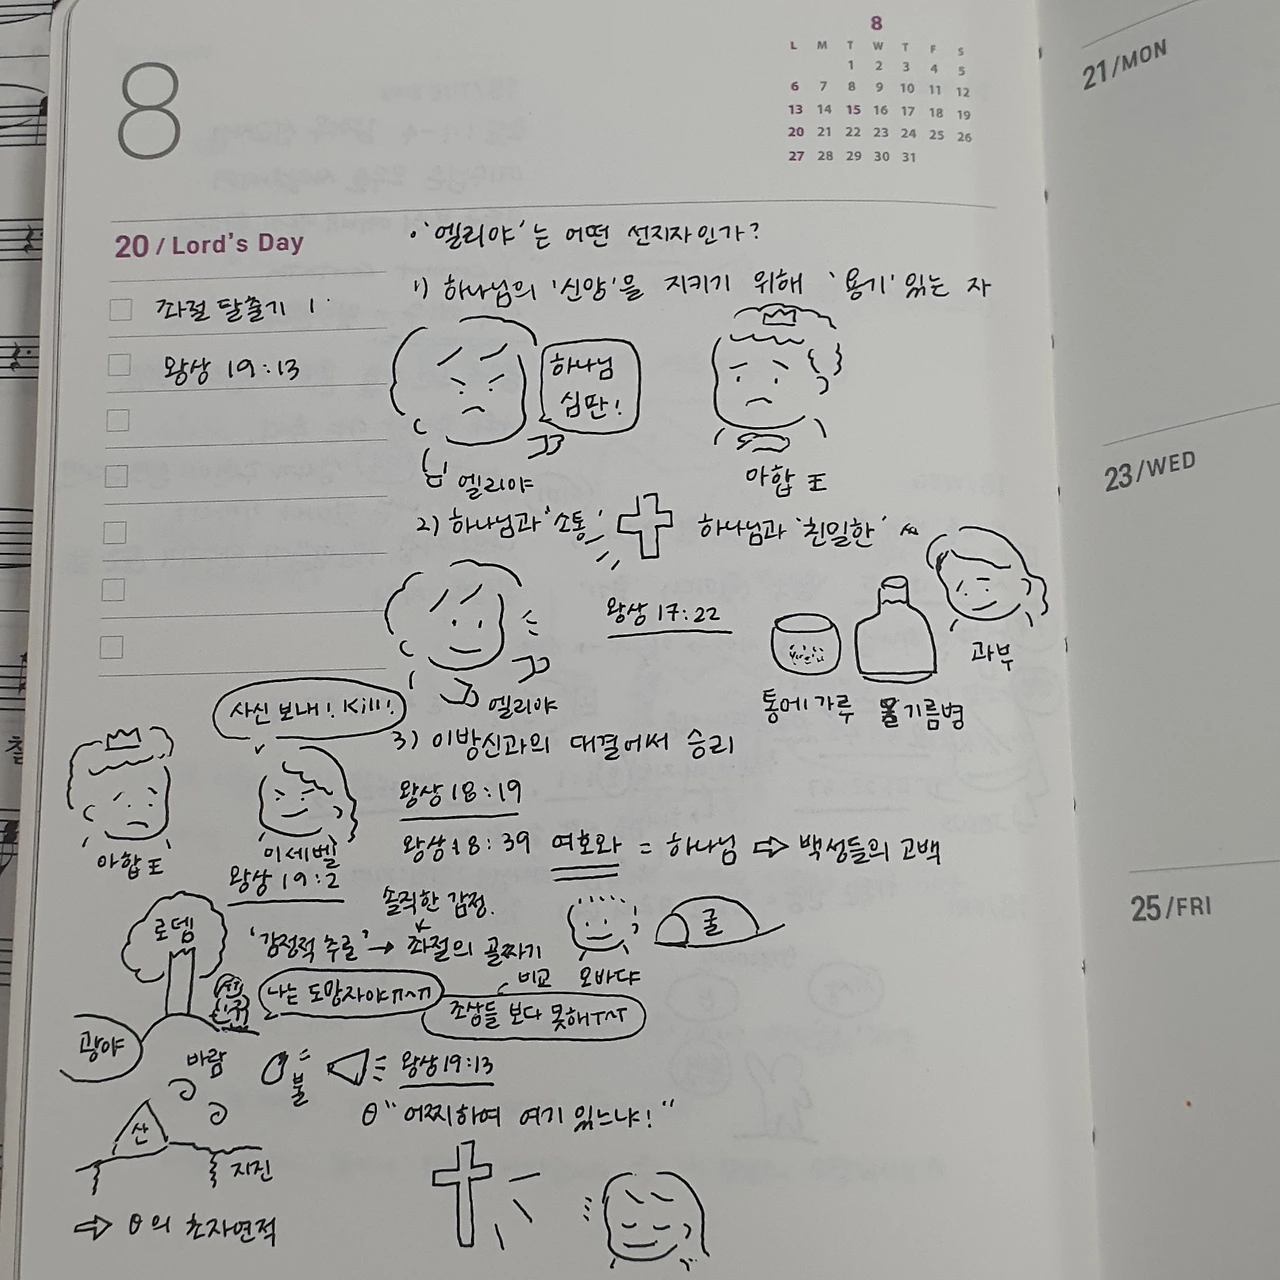 8
8
L M T W T F S
1 2 3 4 5
6 7 8 9 10 11 12
13 14 15 16 17 18 19
20 21 22 23 24 25 26
27 28 29 30 31
20 / Lord's Day
좌절 탈출기 1
왕상 19:13
• '엘리야'는 어떤 선지자인가?
1) 하나님의 '신앙'을 지키기 위해 '용기' 있는 자
하나님
심판!
엘리야
아합 王
2) 하나님과 '소통' 하나님과 '친밀한'
왕상 17:22
엘리야
과부
통에 가루 기름병
사신 보내! Kill!
3) 이방신과의 대결에서 승리
왕상 18:19
왕상 18:39 여호와 = 하나님 ⇨ 백성들의 고백
아합 王
이세벨
왕상 19:2
솔직한 감정.
로뎀
'감정적 추로' → 좌절의 골짜기
굴
비교 오바댜
나는 도망자야ㅠㅅㅠ
조상들 보다 못해ㅜㅅㅜ
광야
바람
불
왕상19:13
θ "어찌하여 여기 있느냐!"
산
지진
⇨ θ의 초자연적
21/MON
23/WED
25/FRI